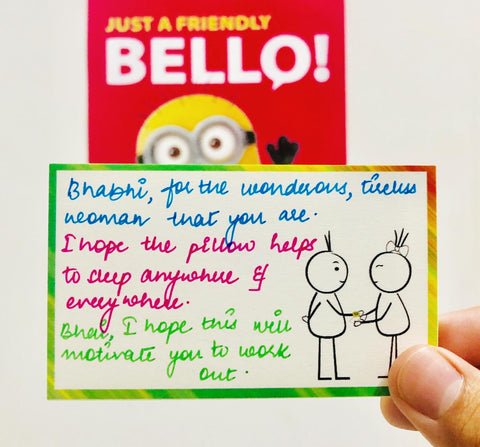 JUST A FRIENDLY
BELLO!
Bhabhi, for the wonderous, tireless
woman that you are.
I hope the pillow helps
to sleep anywhere &
everywhere.
Bhai, I hope this will
motivate you to work
out.